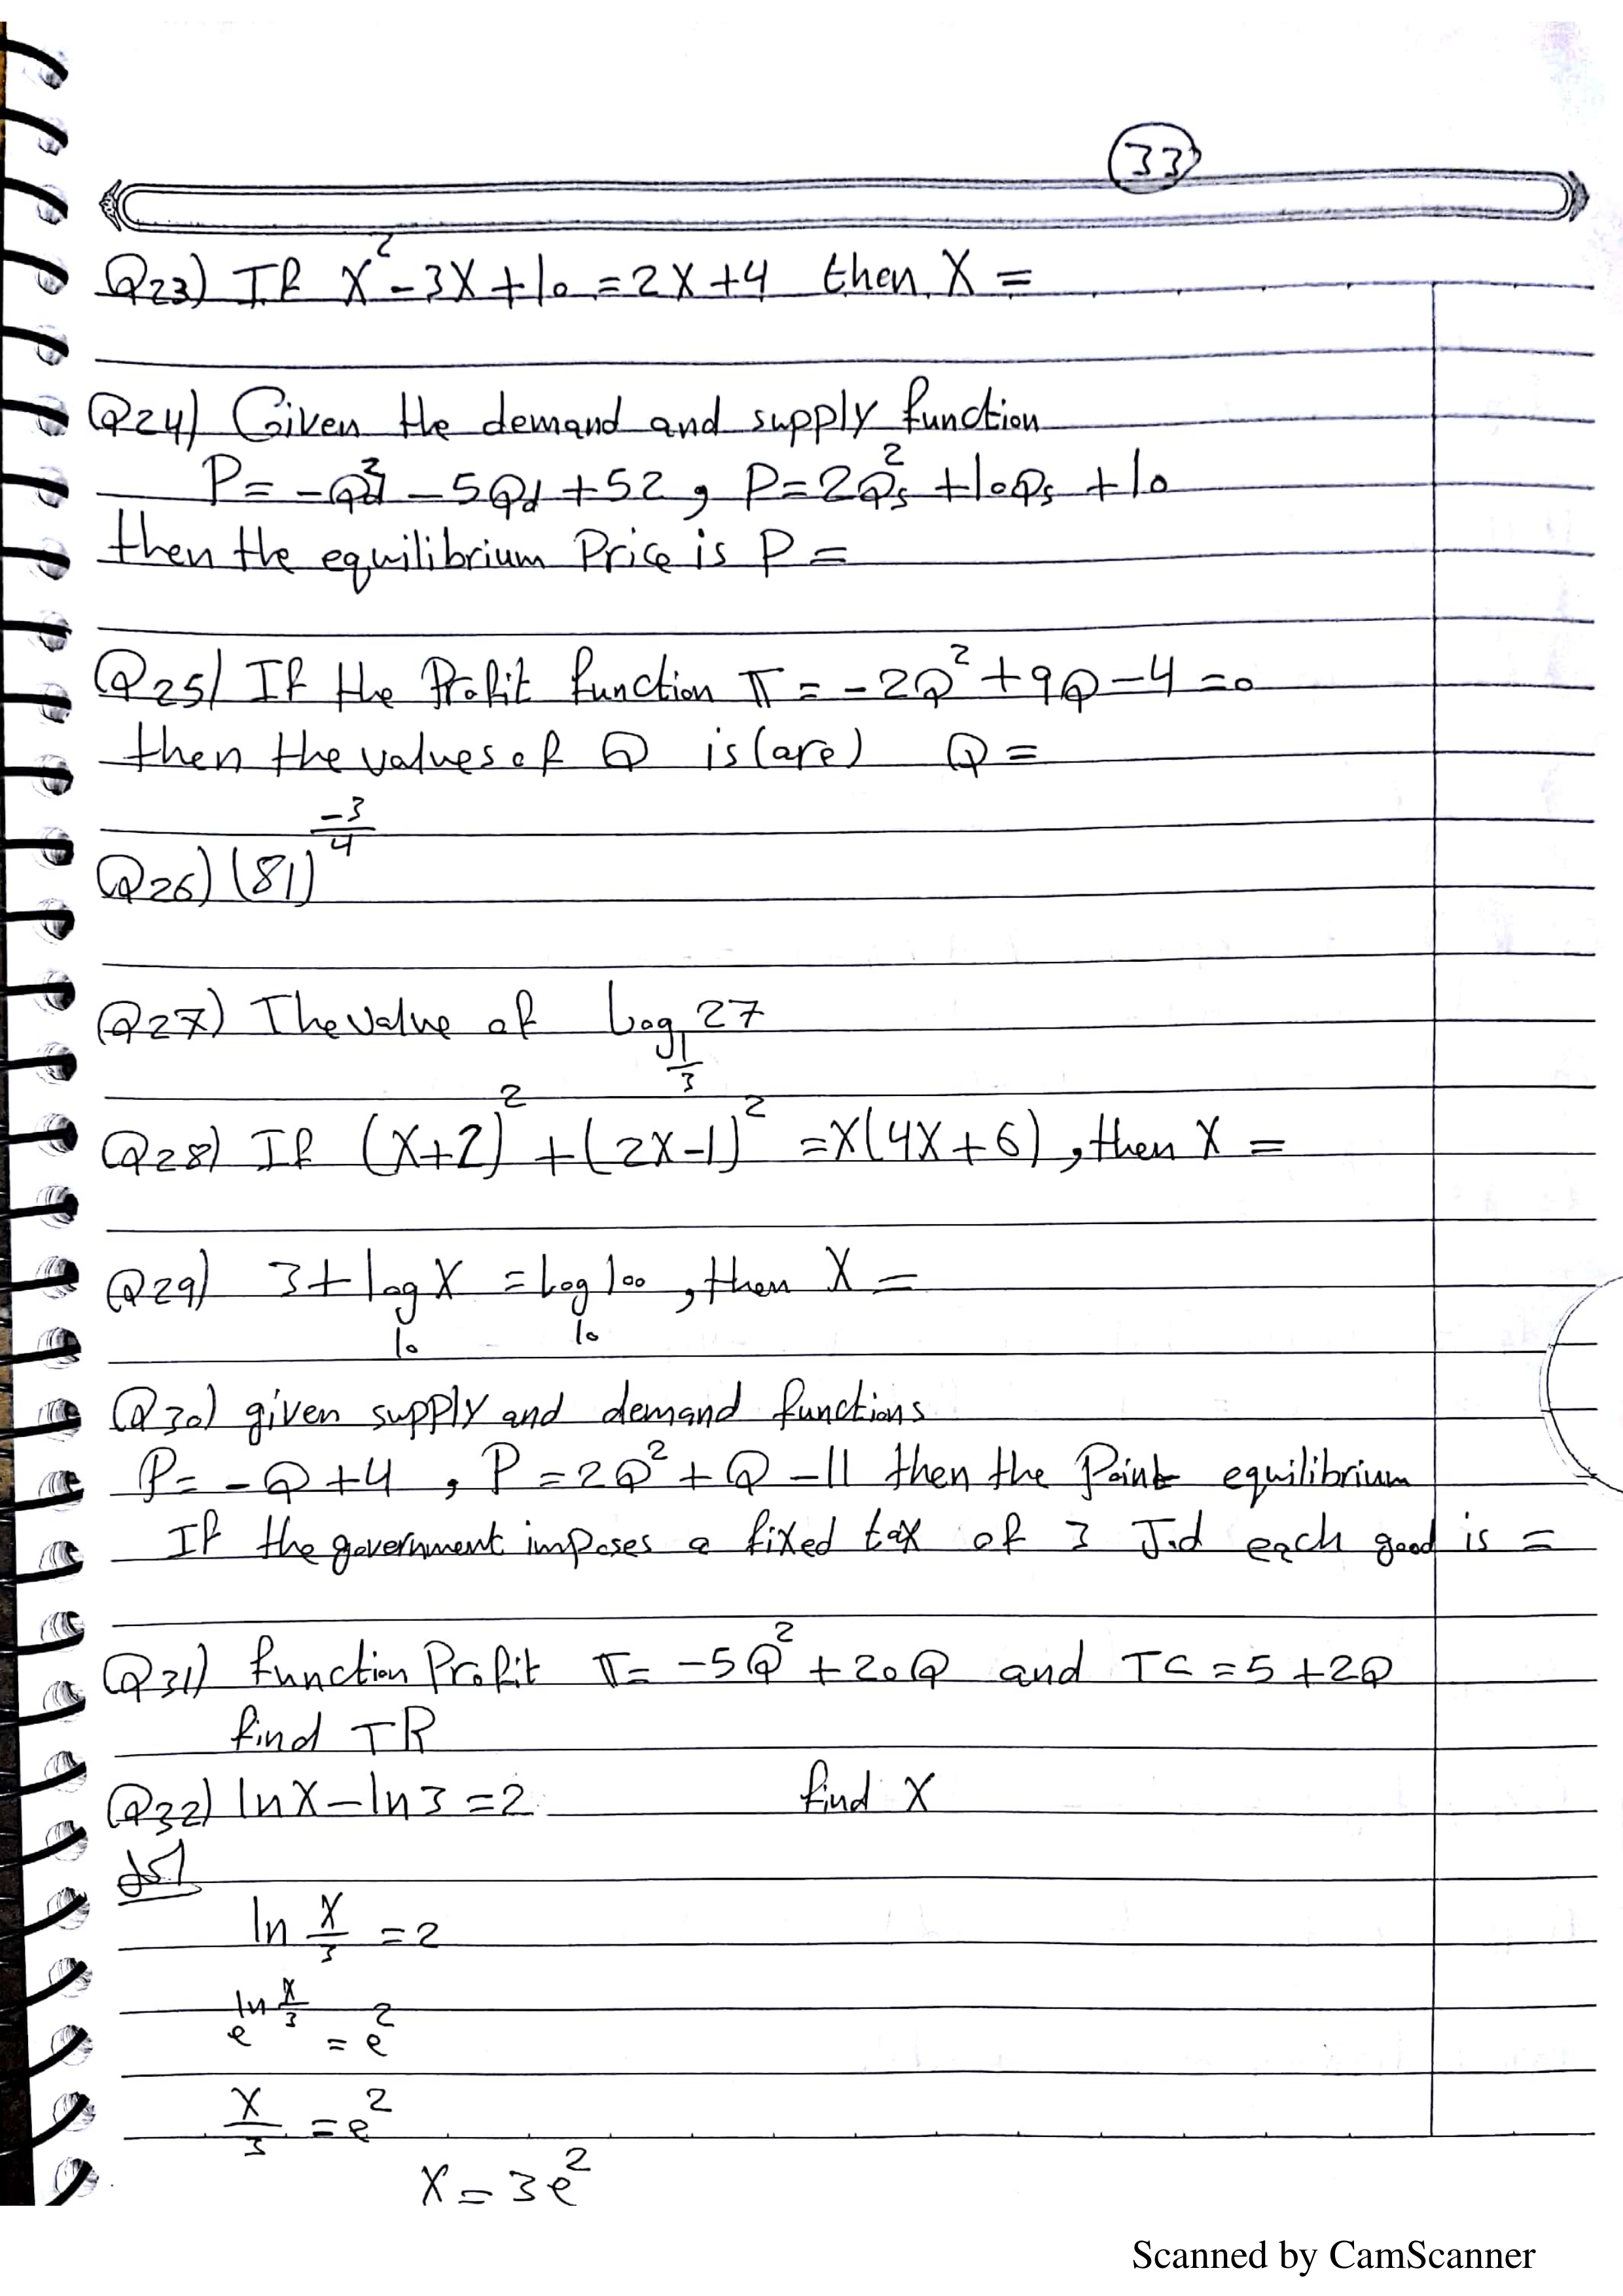 33
Q23) If X² - 3X + 10 = 2X + 4 then X =
Q24) Given the demand and supply function
P = -Qd² - 5Qd + 52 , P = 2Qs² + 10Qs + 10
then the equilibrium Price is P =
Q25) If the Profit function π = -2Q² + 9Q - 4 = 0
then the values of Q is (are) Q =
Q26) (81)^(-3/4)
Q27) The value of Log_(1/3) 27
Q28) If (X+2)² + (2X-1)² = X(4X+6) , then X =
Q29) 3 + log₁₀ X = Log₁₀ 100 , then X =
Q30) given supply and demand functions
P = -Q + 4 , P = 2Q² + Q - 11 then the Point equilibrium
If the government imposes a fixed tax of 3 J.d each good is =
Q31) function Profit π = -5Q² + 20Q and TC = 5 + 2Q
find TR
Q32) ln X - ln 3 = 2 find X
ln X/3 = 2
e^(ln X/3) = e²
X/3 = e²
X = 3e²
Scanned by CamScanner